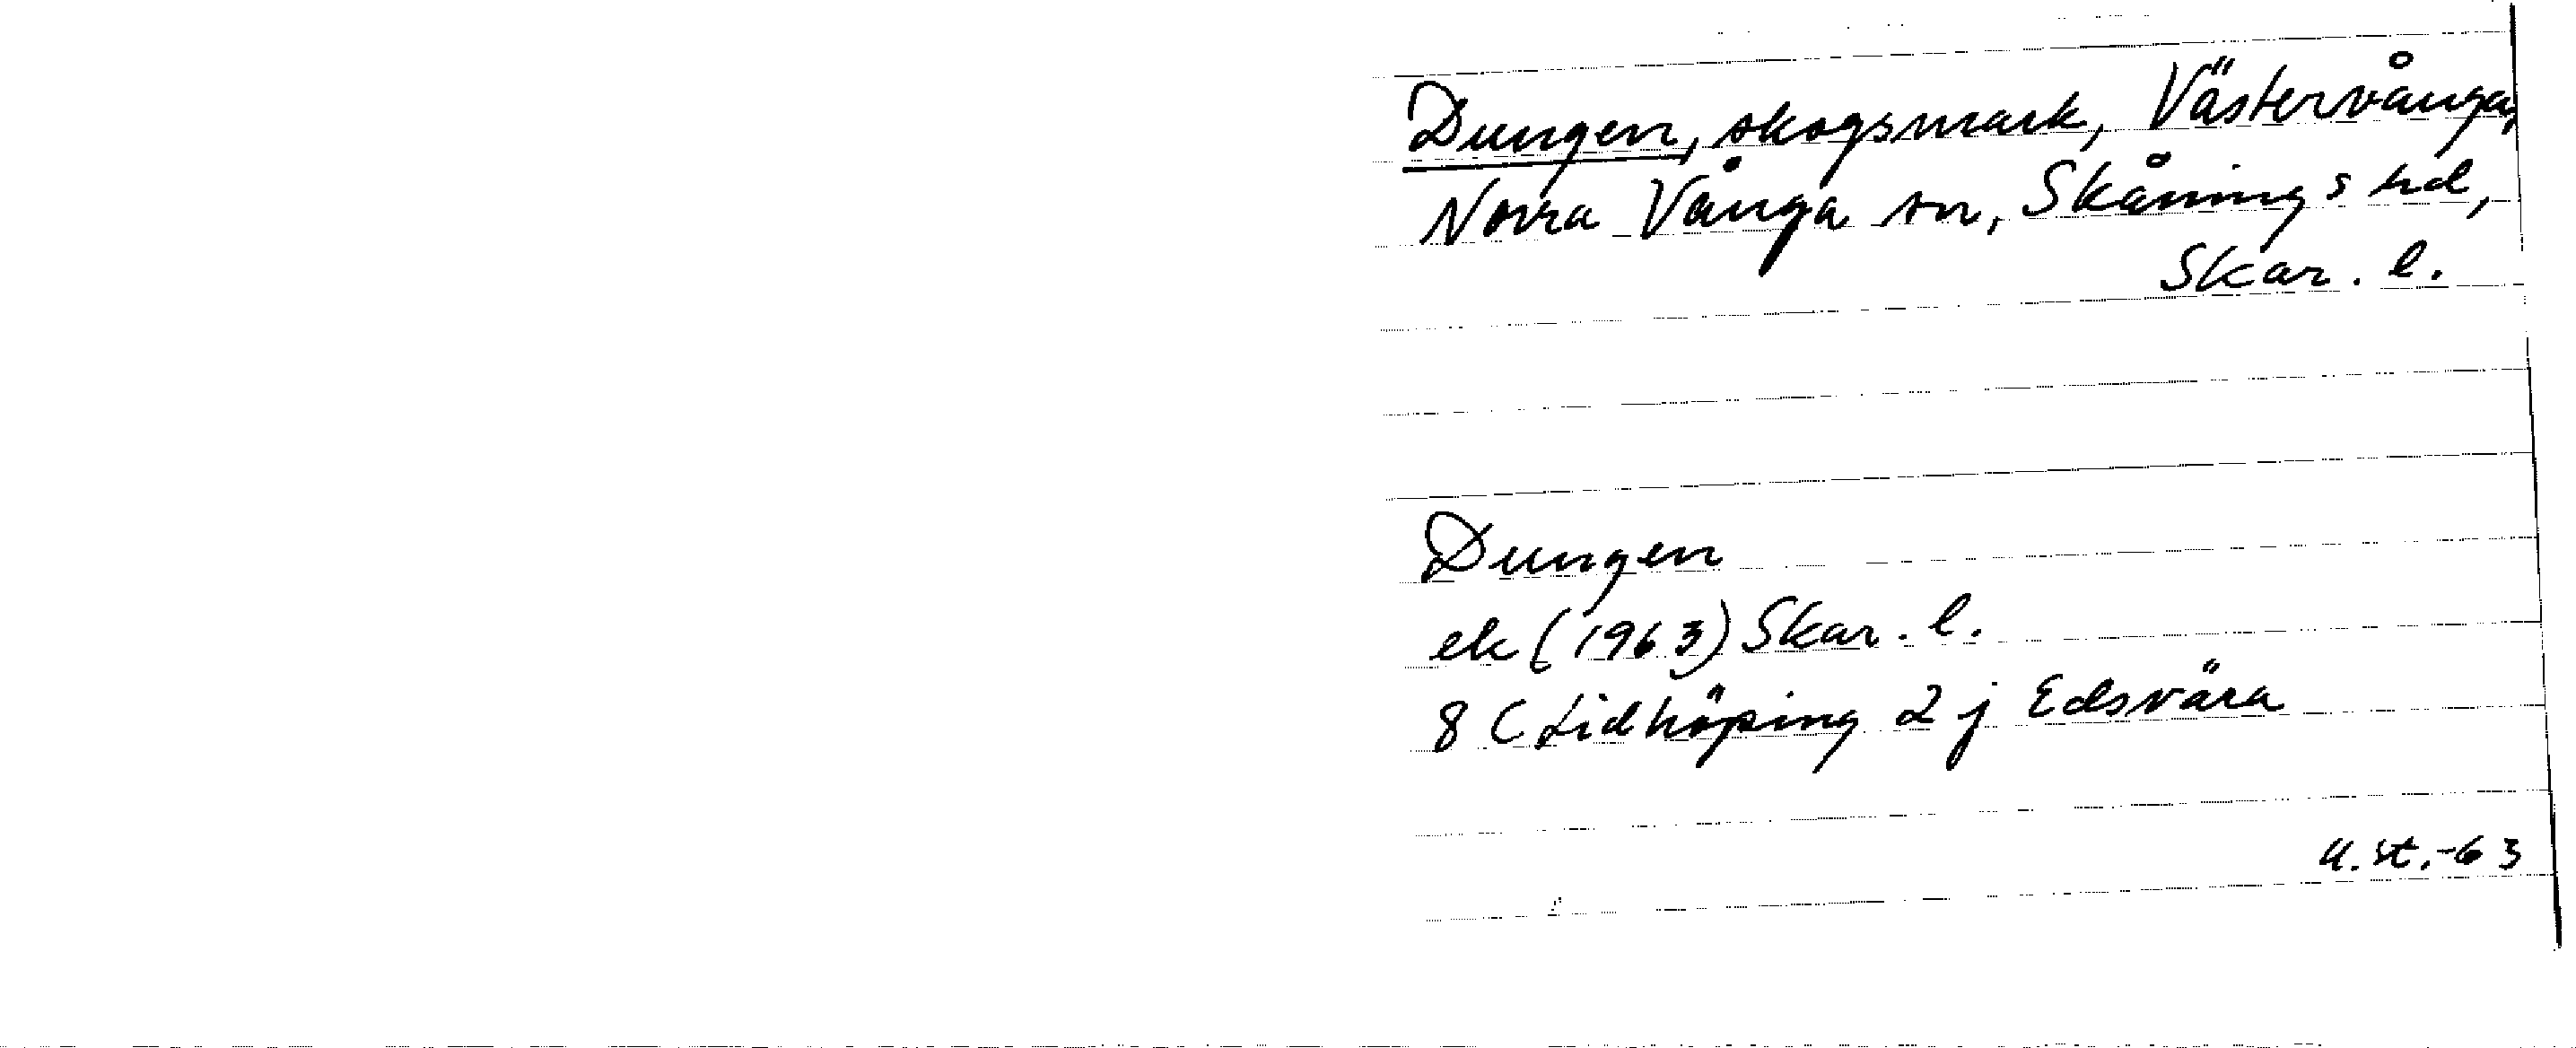 Dungen, skogsmark, Västervånga,
Norra Vånga sn, Skånings hd,
Skar. l.
Dungen
ek (1963) Skar. l.
8 C Lidköping 2 j Edsvära
u.st.-63